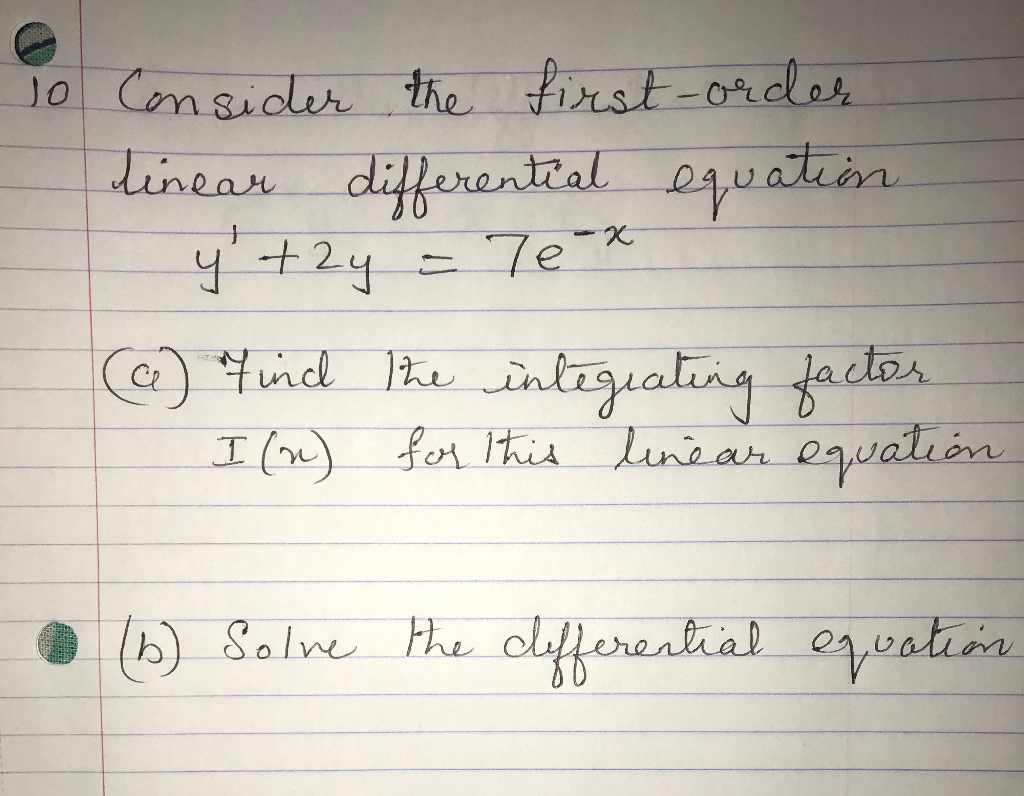 10 Consider the first-order
linear differential equation
y' + 2y = 7e^-x
(a) Find the integrating factor
I(x) for this linear equation
(b) Solve the differential equation